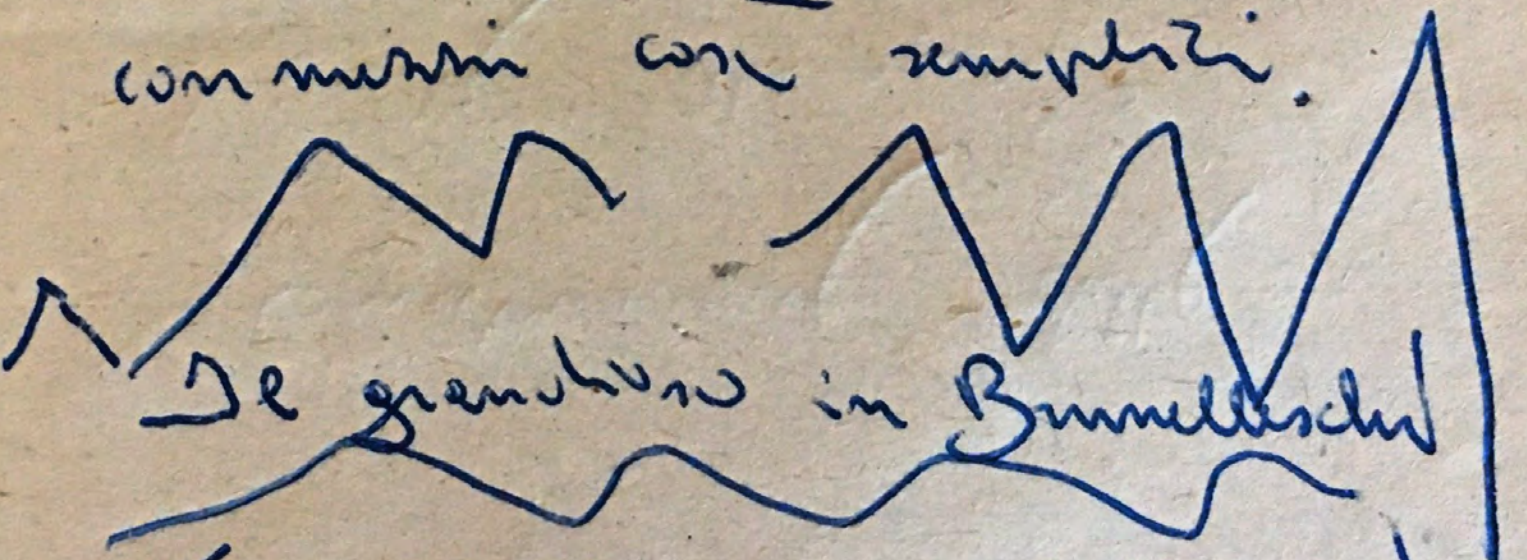 commessi cose semplici.
Il grandioso in Brunelleschi